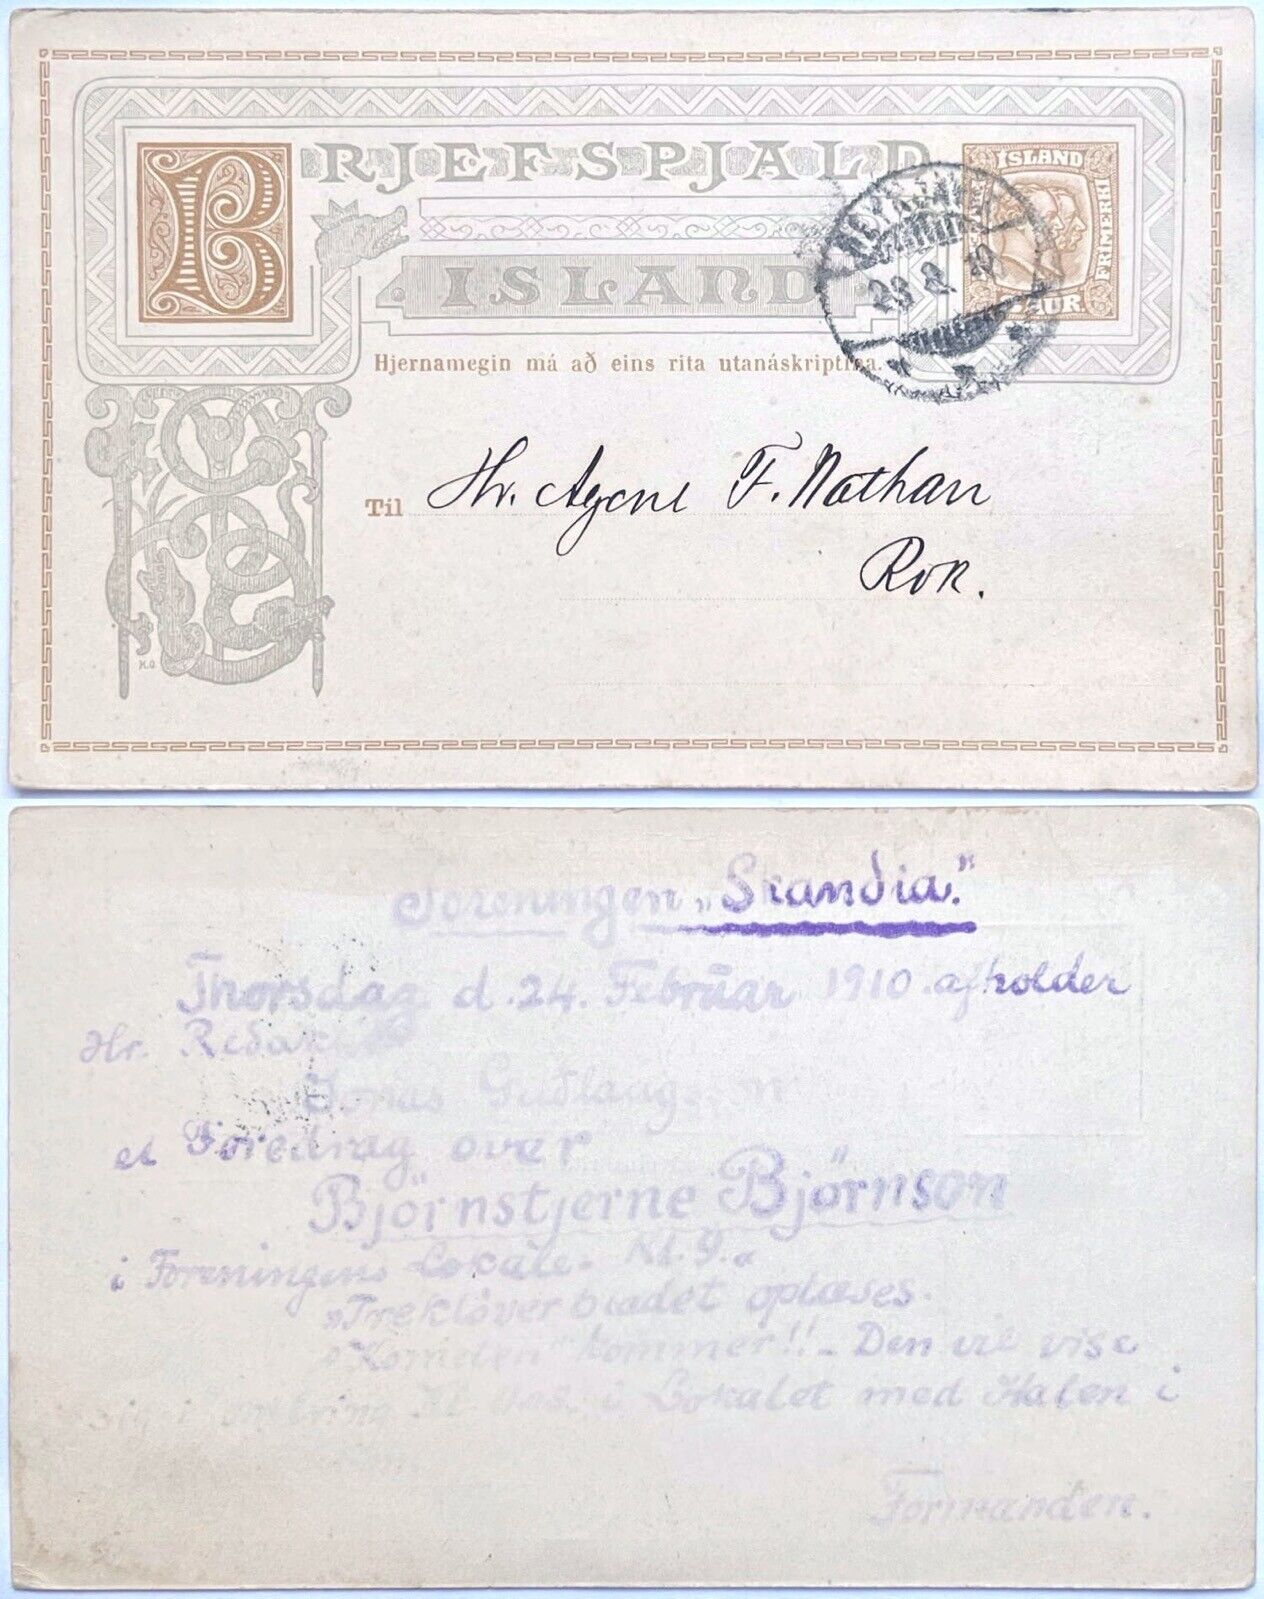 BRJEFSPJALD
ÍSLAND
ÍSLAND
FRÍMERKI
AUR.
REYKJAVIK
23. 2. 10
Hjernamegin má að eins rita utanáskriptina.
Til Hr. Agent F. Nathan
Rvk.
H.O
Foreningen „Skandia."
Thorsdag d. 24. Februar 1910 afholder
Hr. Redaktør
Jonas Guðlaugsson
et Foredrag over
Björnstjerne Björnson
i Foreningens Lokale. Kl. 9.
"Trekløverbladet oplæses.
"Kometen" kommer!! - Den vil vise
sig i i Lokalet med Halen i
Formanden.